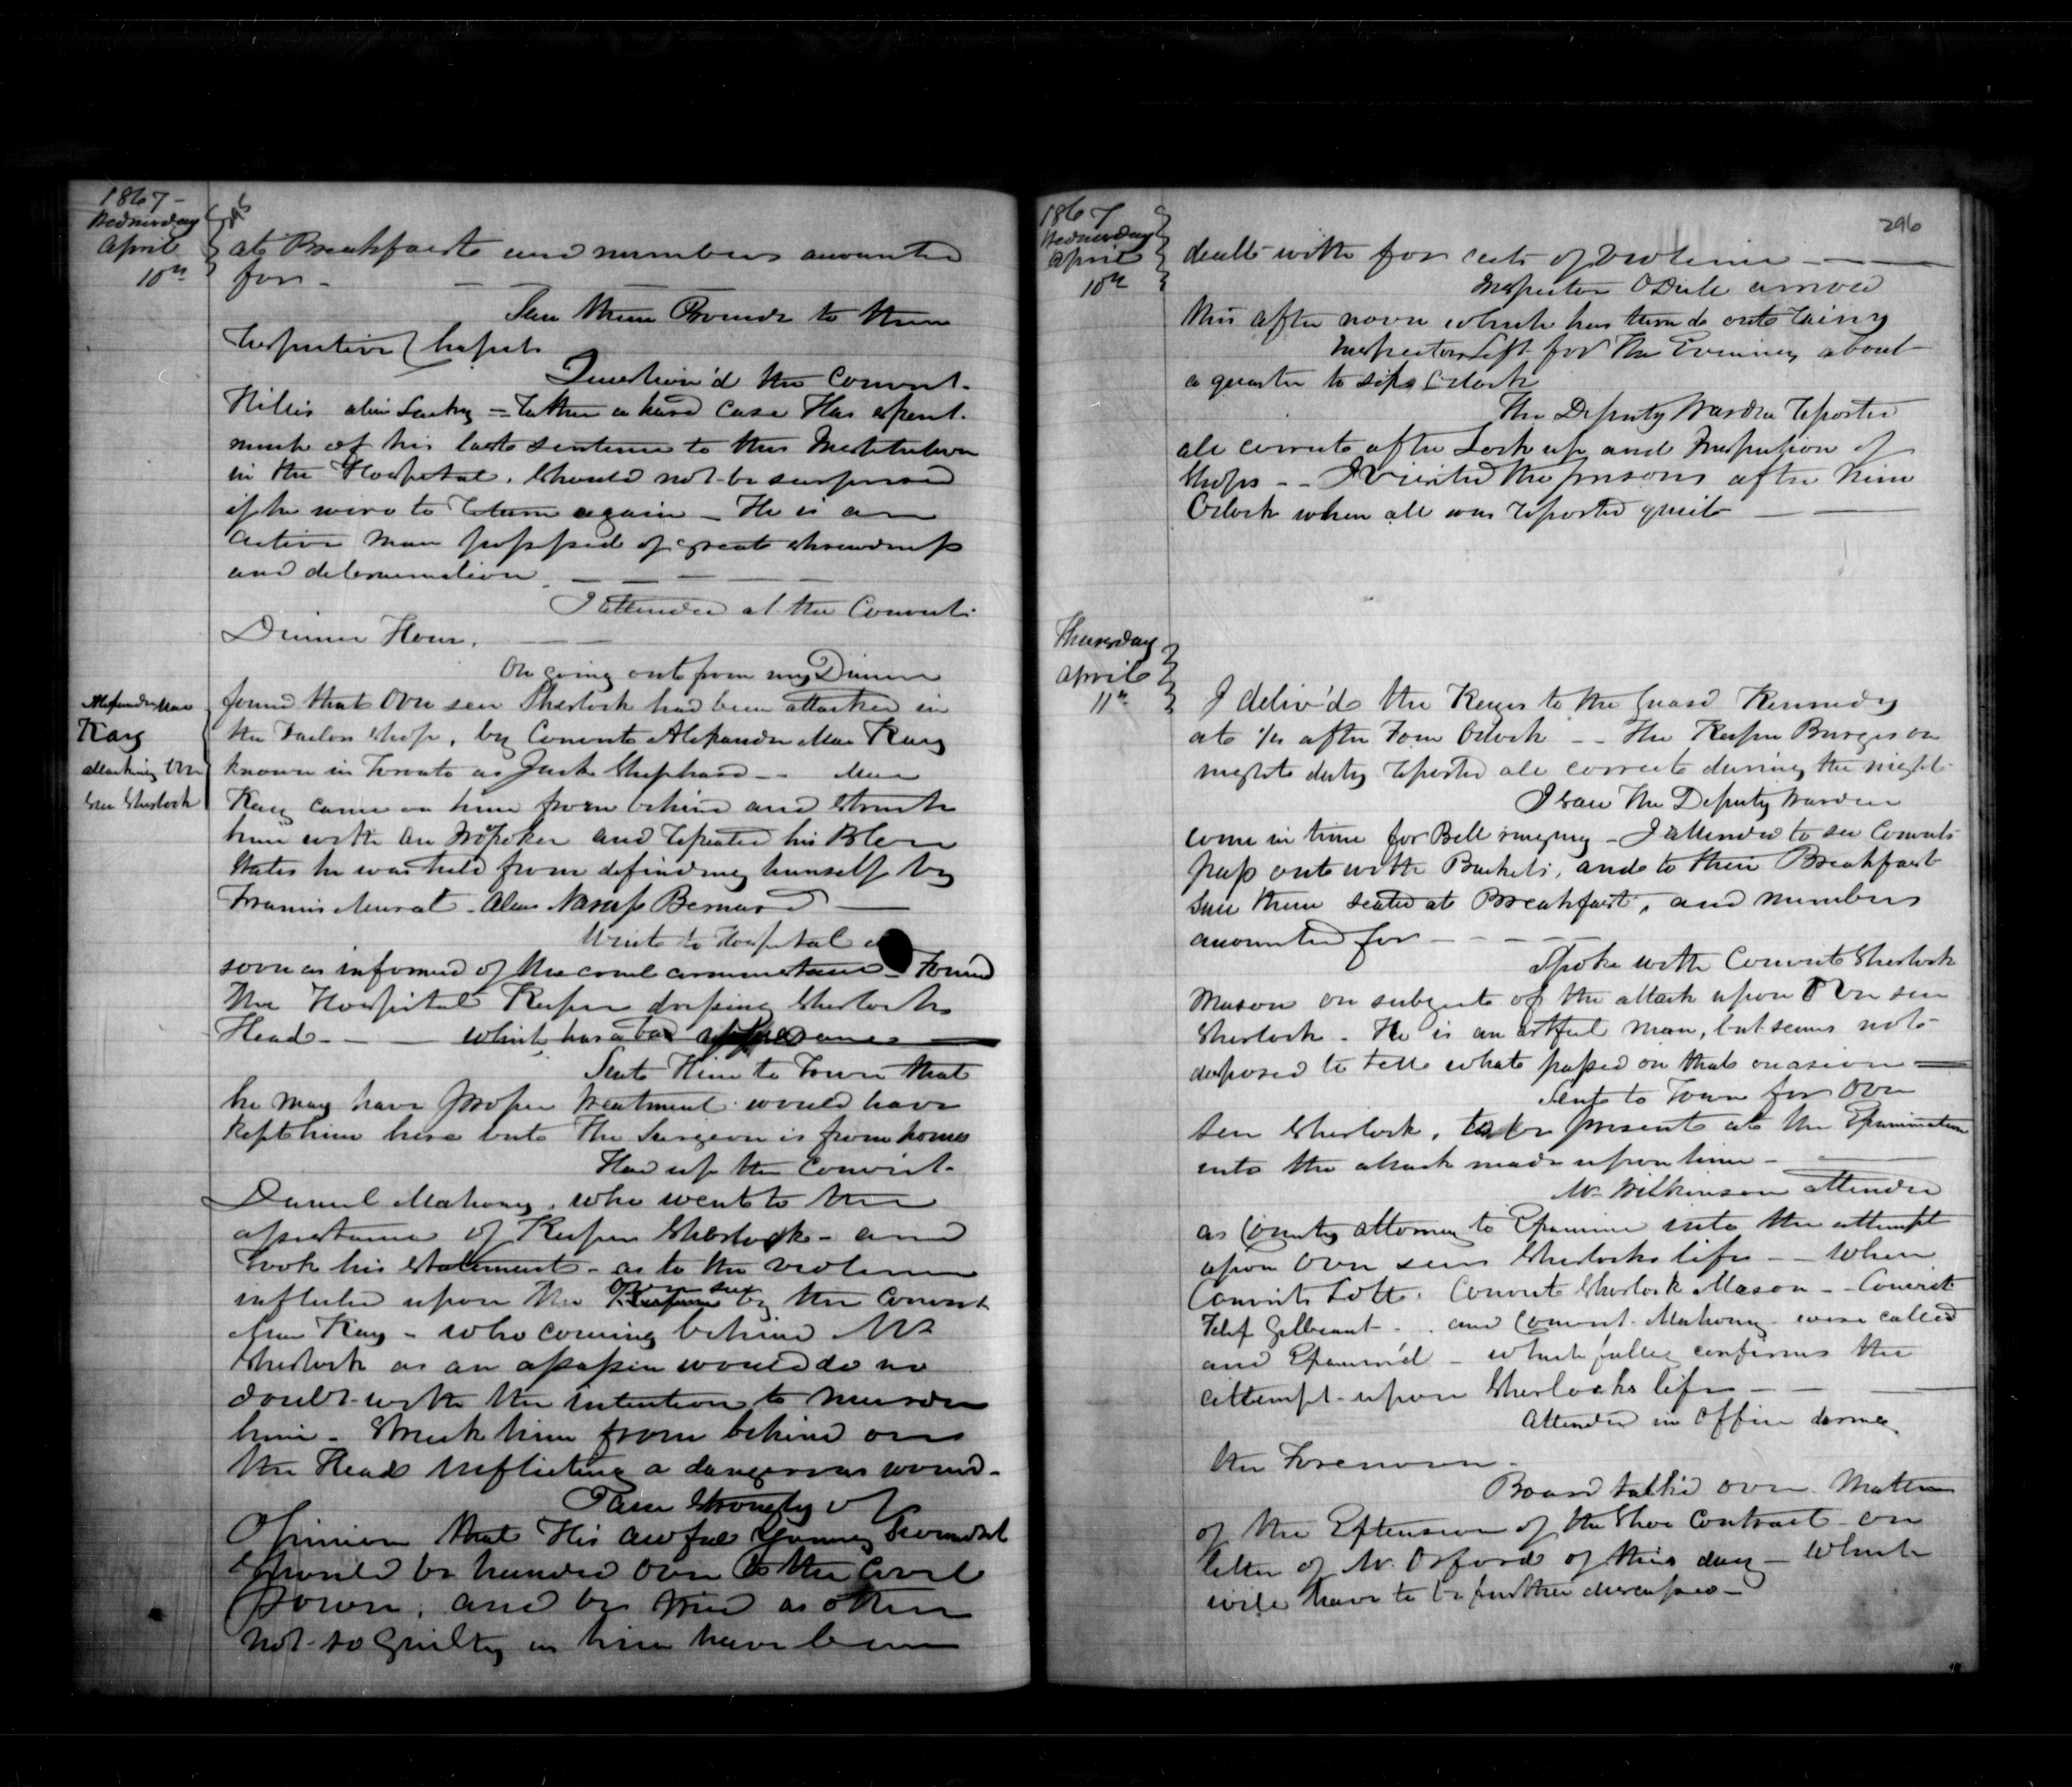 1867 -
Wednesday
April
10th
at Breakfast and numbers accounted
for -
Saw them Proceed to their
respective Chapels
Question'd the Convict
Hillis alias - rather a hard case Has spent
much of his last sentence to this Institution
in the Hospital. Should not be surprised
if he were to return again - He is an
active man possessed of great shrewdness
and determination
I attended at the Convicts
Dinner Hour.
On going out from my Dinner
Alexander Mac
Kay
attacking Over
seer Sherlock
found that Over seer Sherlock had been attacked in
the Tailor Shop, by Convict Alexander Mac Kay
known in Toronto as Jack Shephard - - Mac
Kay came on him from behind and Struck
him with an Iron Poker and repeated his Blow
States he was held from defending himself by
Francis Murat - alias Bernard
Went to Hospital as
soon as informed of the cruel circumstance - Found
the Hospital Keeper dressing Sherlocks
Head - - which has a bad appearance
Sent Him to Town that
he may have proper treatment - would have
kept him here but the Surgeon is from home
Had up the Convict
Daniel Mahony, who went to the
assistance of Keeper Sherlock - and
Took his Statement - as to the violence
inflicted upon the Over seer by the Convict
Mac Kay - who coming behind Mr
Sherlock as an assassin would do no
doubt with the intention to murder
him - Struck him from behind on
the Head inflicting a dangerous wound -
I am Strongly of
Opinion that this awful Young Scoundrel
Should be handed over to the Civil
Power, and be tried as others
not so guilty as him have been
1867
Wednesday
April
10th
296
dealt with for acts of violence - - -
Inspector arrived
this after noon which has turn'd out rainy
Inspectors Left for the Evening about
a quarter to six O'clock
The Deputy Warden reported
all correct after Lock up and Inspection of
Shops - - I visited the prisons after nine
O'clock when all was reported quiet
Thursday
April
11th
I deliv'd the Keys to the Guard Kennedy
at 1/4 after Four O'clock - - The Keeper Burgess on
night duty reported all correct during the night
I saw the Deputy Warden
come in time for Bell ringing - I attended to see Convicts
pass out with Buckets, and to their Breakfast
Saw them seated at Breakfast, and numbers
accounted for - - - -
Spoke with Convict Sherlock
Mason on subject of the attack upon Over seer
Sherlock - He is an artful man, but seems not
disposed to tell what passed on that occasion
Sent to Town for Over
seer Sherlock, to be present at the Examination
into the attack made upon him -
Mr Wilkinson attended
as County attorney to Examine into the attempt
upon Over seer Sherlocks life - - when
Convict Lott. Convict Sherlock Mason - - Convict
Gilbeaut - . and Convict Mahony were called
and Examin'd - which fully confirms the
attempt upon Sherlocks life - -
Attended in Office during
the Forenoon -
Board talk'd over Matter
of the Extension of the Shoe Contract on
letter of Mr. Oxford of this day - Which
will have to be further discussed -